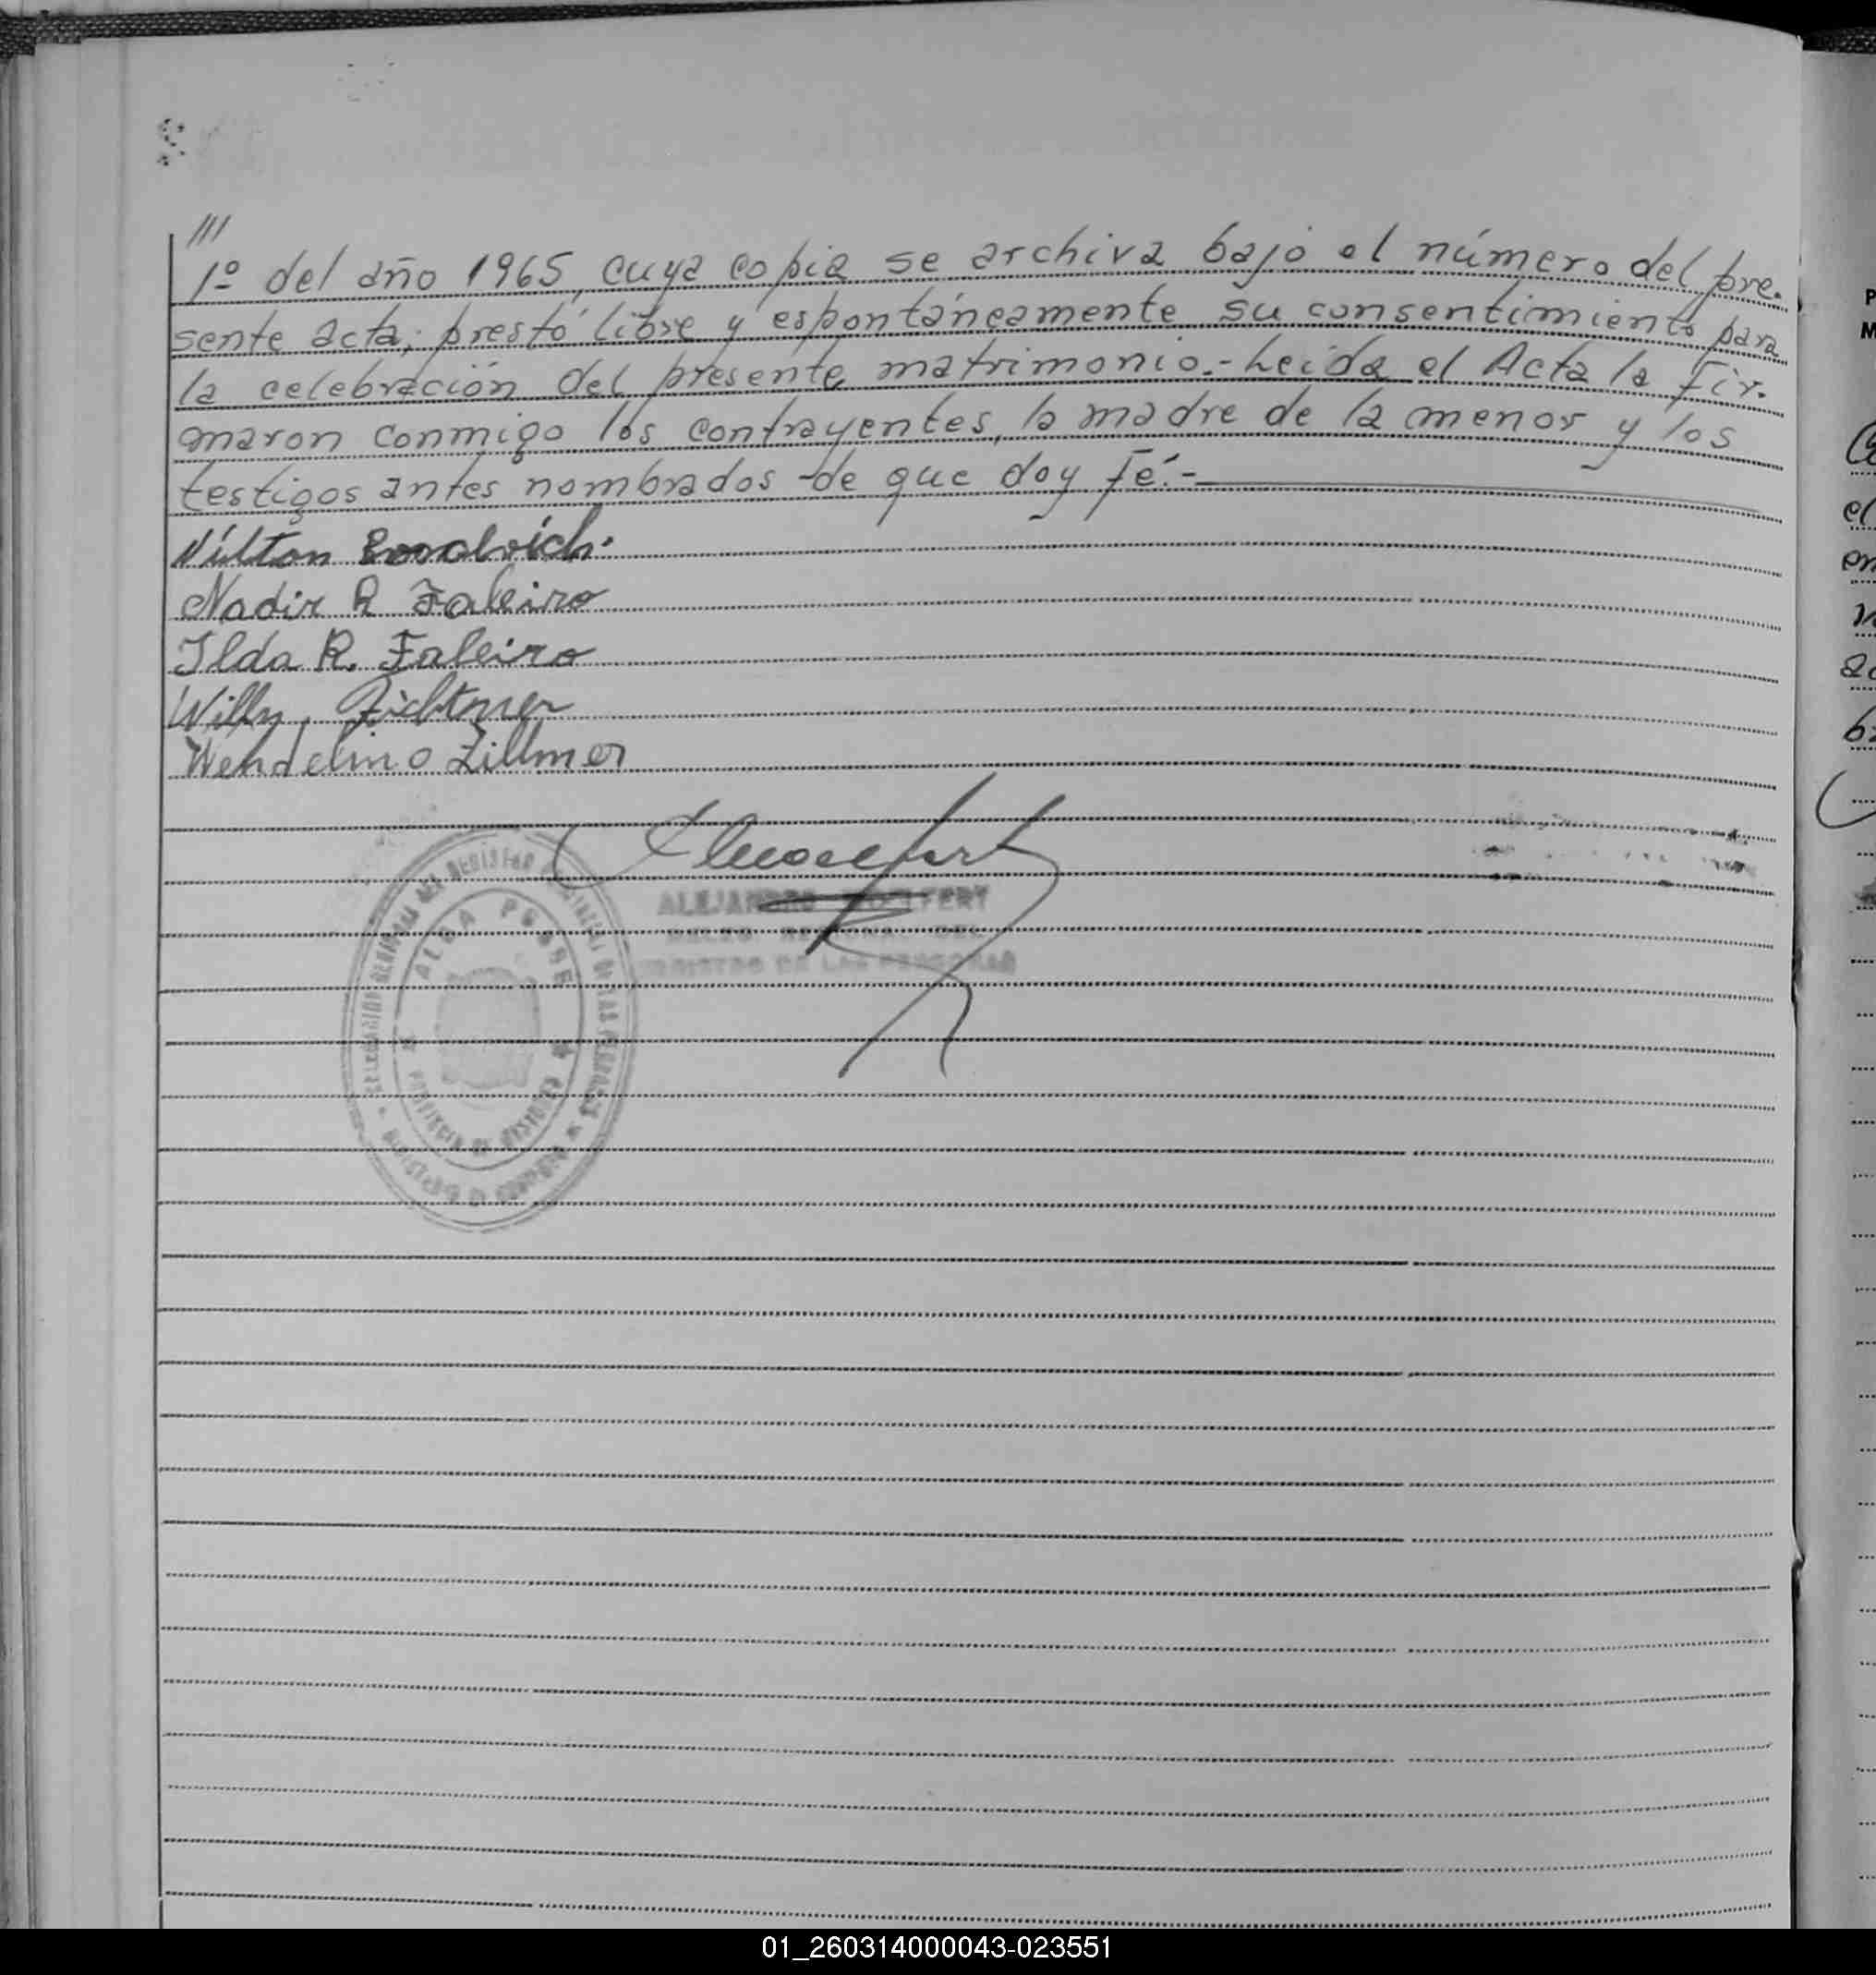 ///
1º del año 1965, cuya copia se archiva bajo el número del pre-
sente acta; prestó libre y espontáneamente su consentimiento para
la celebración del presente matrimonio.- Leída el Acta la fir-
maron conmigo los contrayentes, la madre de la menor y los
testigos antes nombrados -de que doy fé.-
Nílton
Nadir R Faleiro
Ilda R. Faleiro
Willy,
Wendelino Zillmer
ALEJANDRO
REGIONAL DEL
REGISTRO DE LAS PERSONAS
ALBA POSSE
PROVINCIA DE MISIONES
01_260314000043-023551